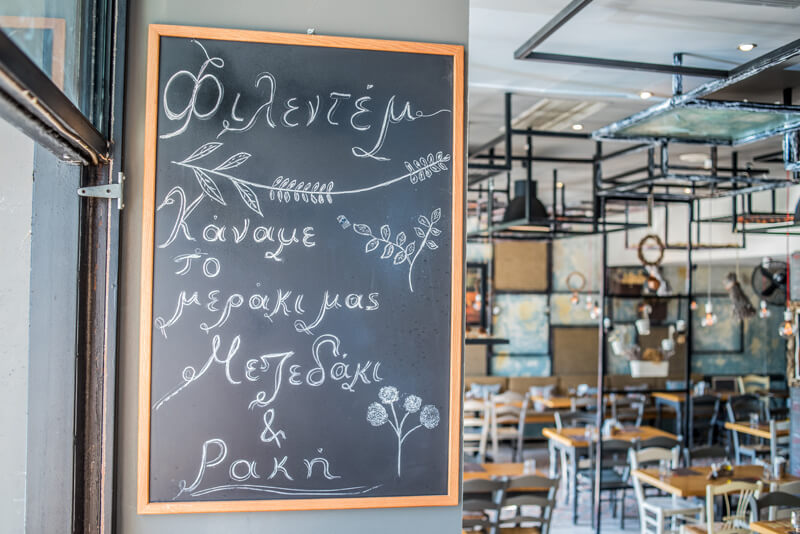 Φιλεντέμ
Κάναμε
το
μεράκι μας
Μεζεδάκι
&
Ρακή